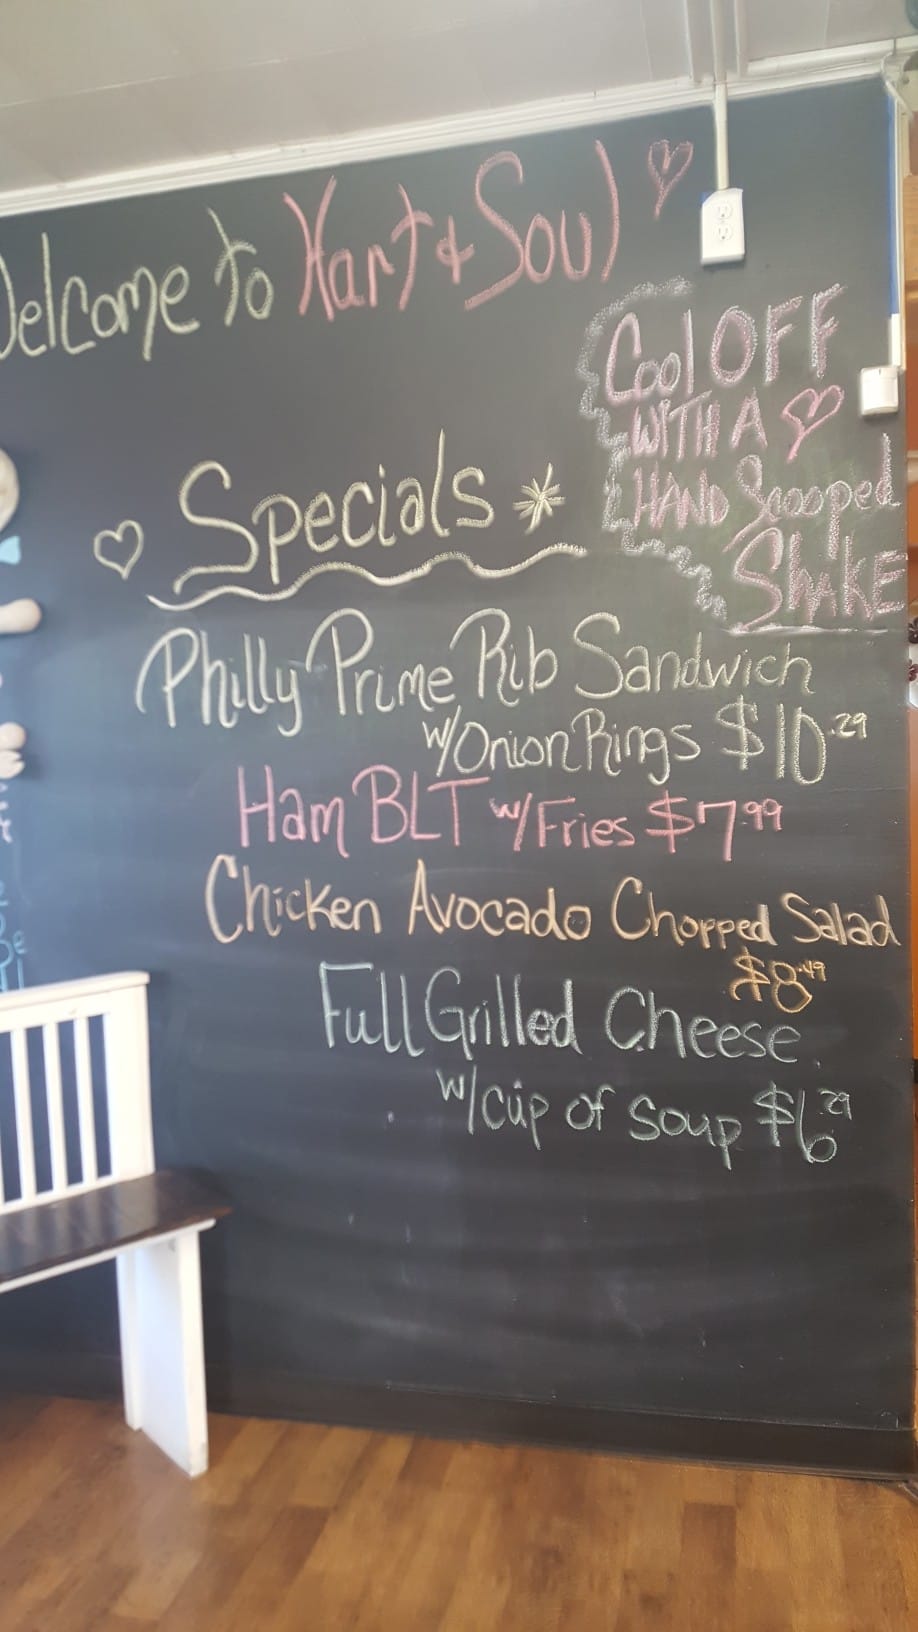 Welcome to Hart & Soul
Cool OFF
WITH A
HAND Scooped
SHAKE
Specials
Philly Prime Rib Sandwich
w/Onion Rings $10.29
Ham BLT w/Fries $7.99
Chicken Avocado Chopped Salad
$8.49
Full Grilled Cheese
w/cup of soup $6.29